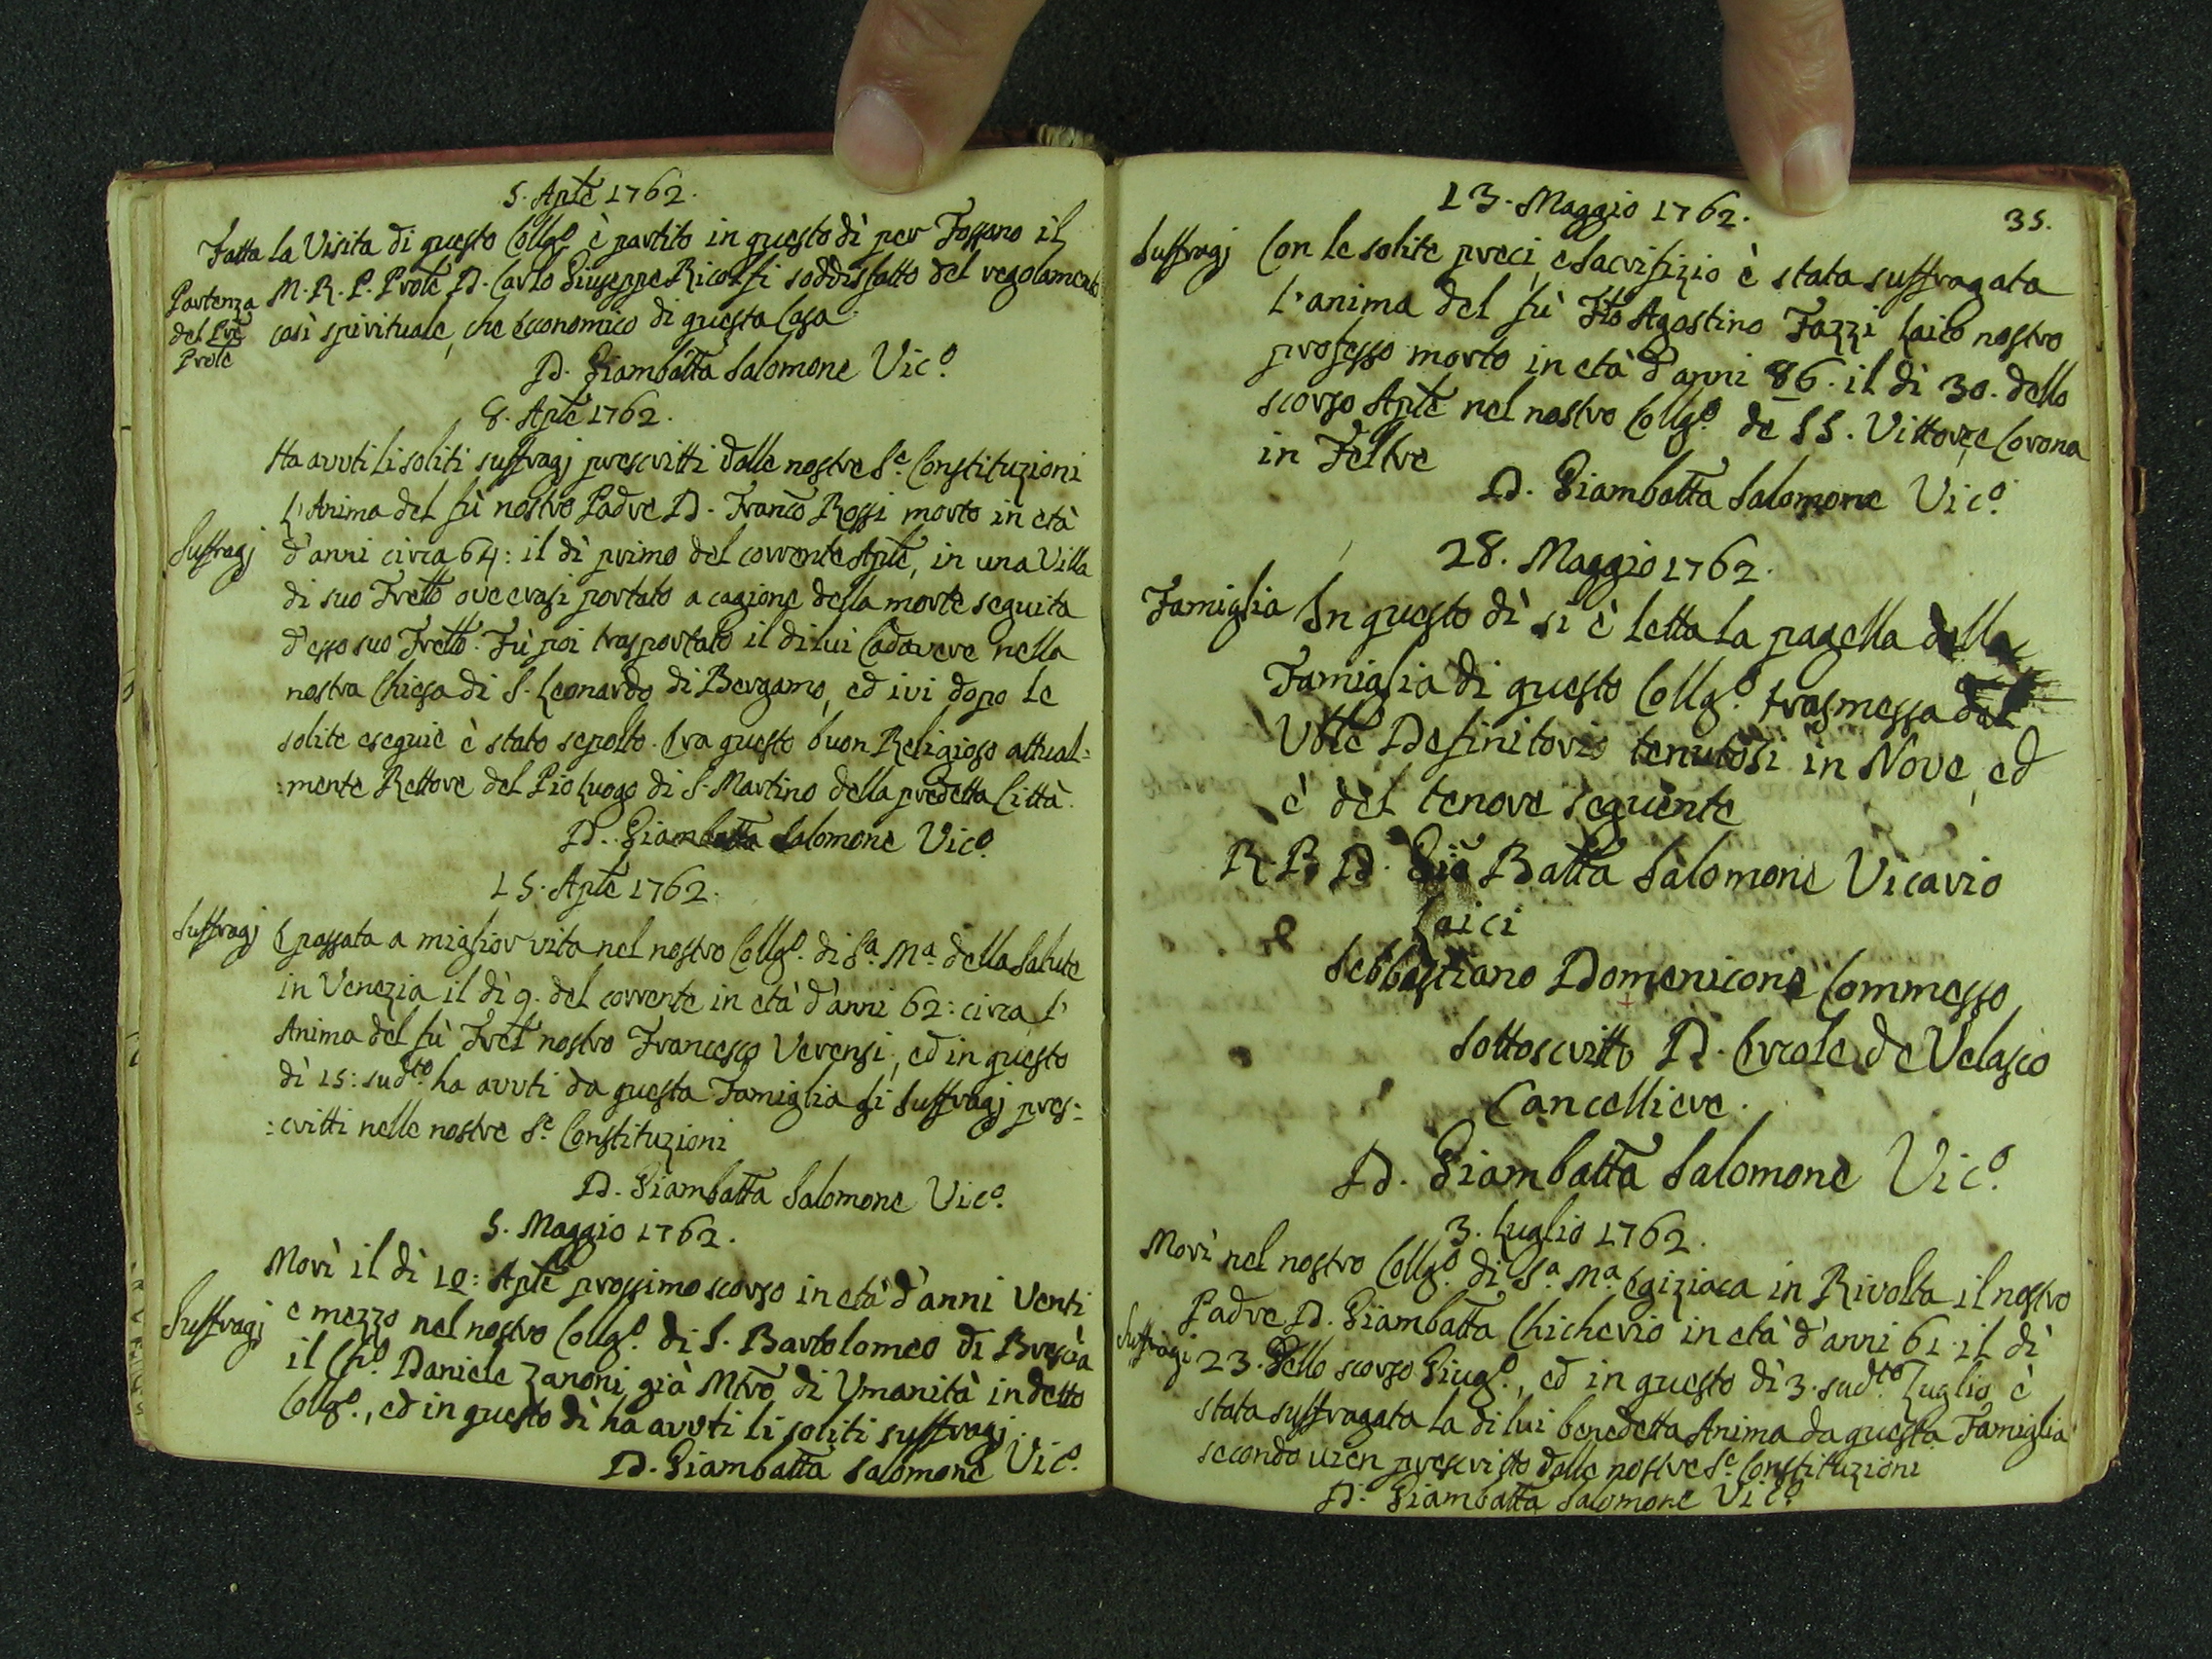 5. Aple 1762.
Fatta la Visita di questo Collgº è partito in questo dì per Fossano il
Partenza del Pre Prole
M. R. P. Prole D. Carlo Giuseppe Ricolfi soddisfatto del regolamento
così spirituale, che economico di questa Casa.
D. Giambatta Salomone Vicº.
8. Aple 1762.
Ha avuti li soliti suffragj prescritti dalle nostre Se Constituzioni
l'Anima del fù nostro Padre D. Franco Rossi morto in età
Suffragj
d'anni circa 64: il dì primo del corrente Aple, in una Villa
di suo Frello ove erasi portato a cagione della morte seguita
d'esso suo Frello. Fù poi trasportato il di lui Cadavere nella
nostra Chiesa di S. Leonardo di Bergamo, ed ivi dopo le
solite esequie è stato sepolto. Era questo buon Religioso attual=
=mente Rettore del Pio Luogo di S. Martino della predetta Città.
D. Giambatta Salomone Vicº.
15. Aple 1762.
Suffragj
E passata a miglior vita nel nostro Collgº. di Sª. Mª. della Salute
in Venezia il dì 9. del corrente in età d'anni 62: circa l'
Anima del fù Frel nostro Francesco Verensi, ed in questo
dì 15: sudto. ha avuti da questa Famiglia gi Suffragj pres=
=critti nelle nostre Se Constituzioni
D. Giambatta Salomone Vicº.
5. Maggio 1762.
Morì il dì 10: Aple prossimo scorso in età d'anni Venti
Suffragj
e mezzo nel nostro Collgº. di S. Bartolomeo di Brescia
il Chº. Daniele Zanoni, già Mtro di Umanità in detto
Collgº., ed in questo dì ha avuti li soliti suffragj.
D. Giambatta Salomone Vicº.
13. Maggio 1762.
35.
Suffragj
Con le solite preci, e Sacrifizio è stata suffragata
l'anima del fù Fllo Agostino Fazzi Laico nostro
professo morto in età d'anni 86. il dì 30. dello
scorso Aple nel nostro Collgº. de SS. Vittore, e Corona
in Feltre
D. Giambatta Salomone Vicº.
28. Maggio 1762.
Famiglia
In questo dì si è letta la pagella della
Famiglia di questo Collgº. trasmessa dal
Vble Definitorio tenutosi in Nove, ed
è del tenore seguente
R. P. D. Gio Batta Salomone Vicario
Laici
Sebbastiano Domenicone Commesso
sottoscritto D. Ercole de Velasco
Cancelliere.
D. Giambatta Salomone Vicº.
3. Luglio 1762.
Morì nel nostro Collgº. di Sª Mª Egiziaca in Rivolta il nostro
Padre D. Giambatta Chicherio in età d'anni 61. il dì
Suffragj
23. dello scorso Giugº., ed in questo dì 3. sudto. Luglio è
stata suffragata la di lui benedetta Anima da questa Famiglia
secondo vien prescritto dalle nostre Se Constituzioni
D. Giambatta Salomone Vicº